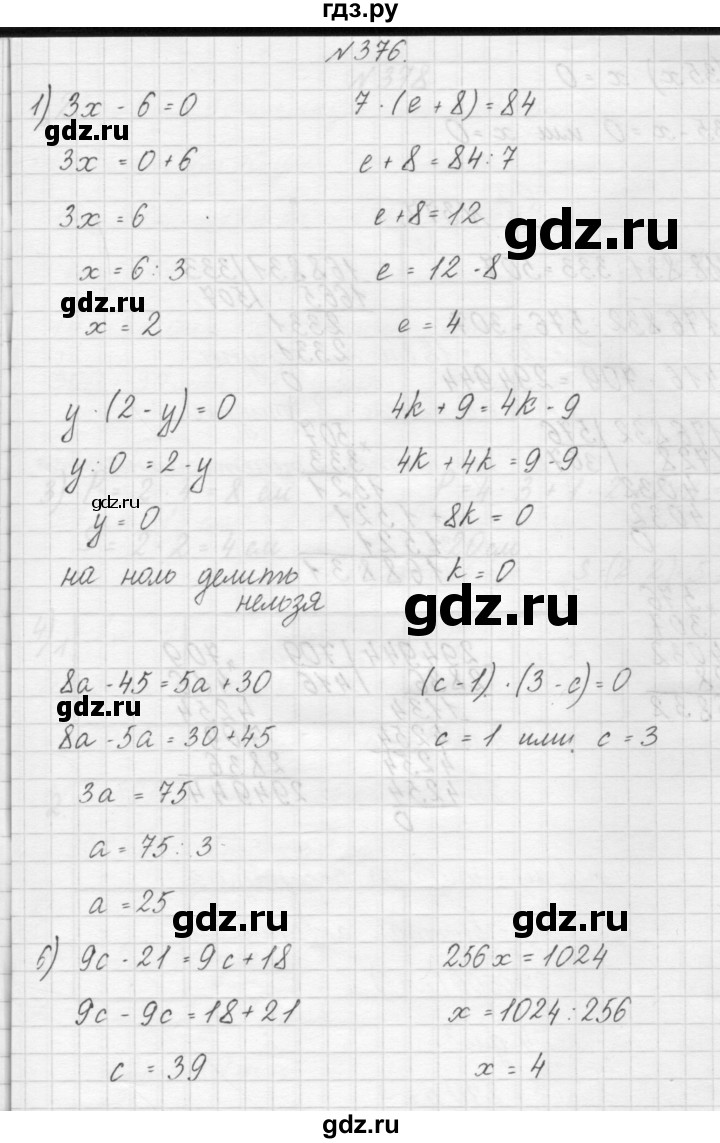 гдз.ру
№376.
1) 3x - 6 = 0
gdz.ru
3x = 0 + 6
3x = 6
x = 6 : 3
gdz.ru
x = 2
7 · (e + 8) = 84
e + 8 = 84 : 7
e + 8 = 12
gdz.ru
e = 12 - 8
e = 4
y · (2 - y) = 0
y : 0 = 2 - y
gdz.ru
y = 0
на ноль делить
нельзя
4k + 9 = 4k - 9
4k + 4k = 9 - 9
8k = 0
k = 0
gdz.ru
8a - 45 = 5a + 30
gdz.ru
8a - 5a = 30 + 45
3a = 75
a = 75 : 3
a = 25
gdz.ru
(c - 1) · (3 - c) = 0
c = 1 или c = 3
gdz.ru
б) 9c - 21 = 9c + 18
9c - 9c = 18 + 21
c = 39
256x = 1024
x = 1024 : 256
x = 4
gdz.ru